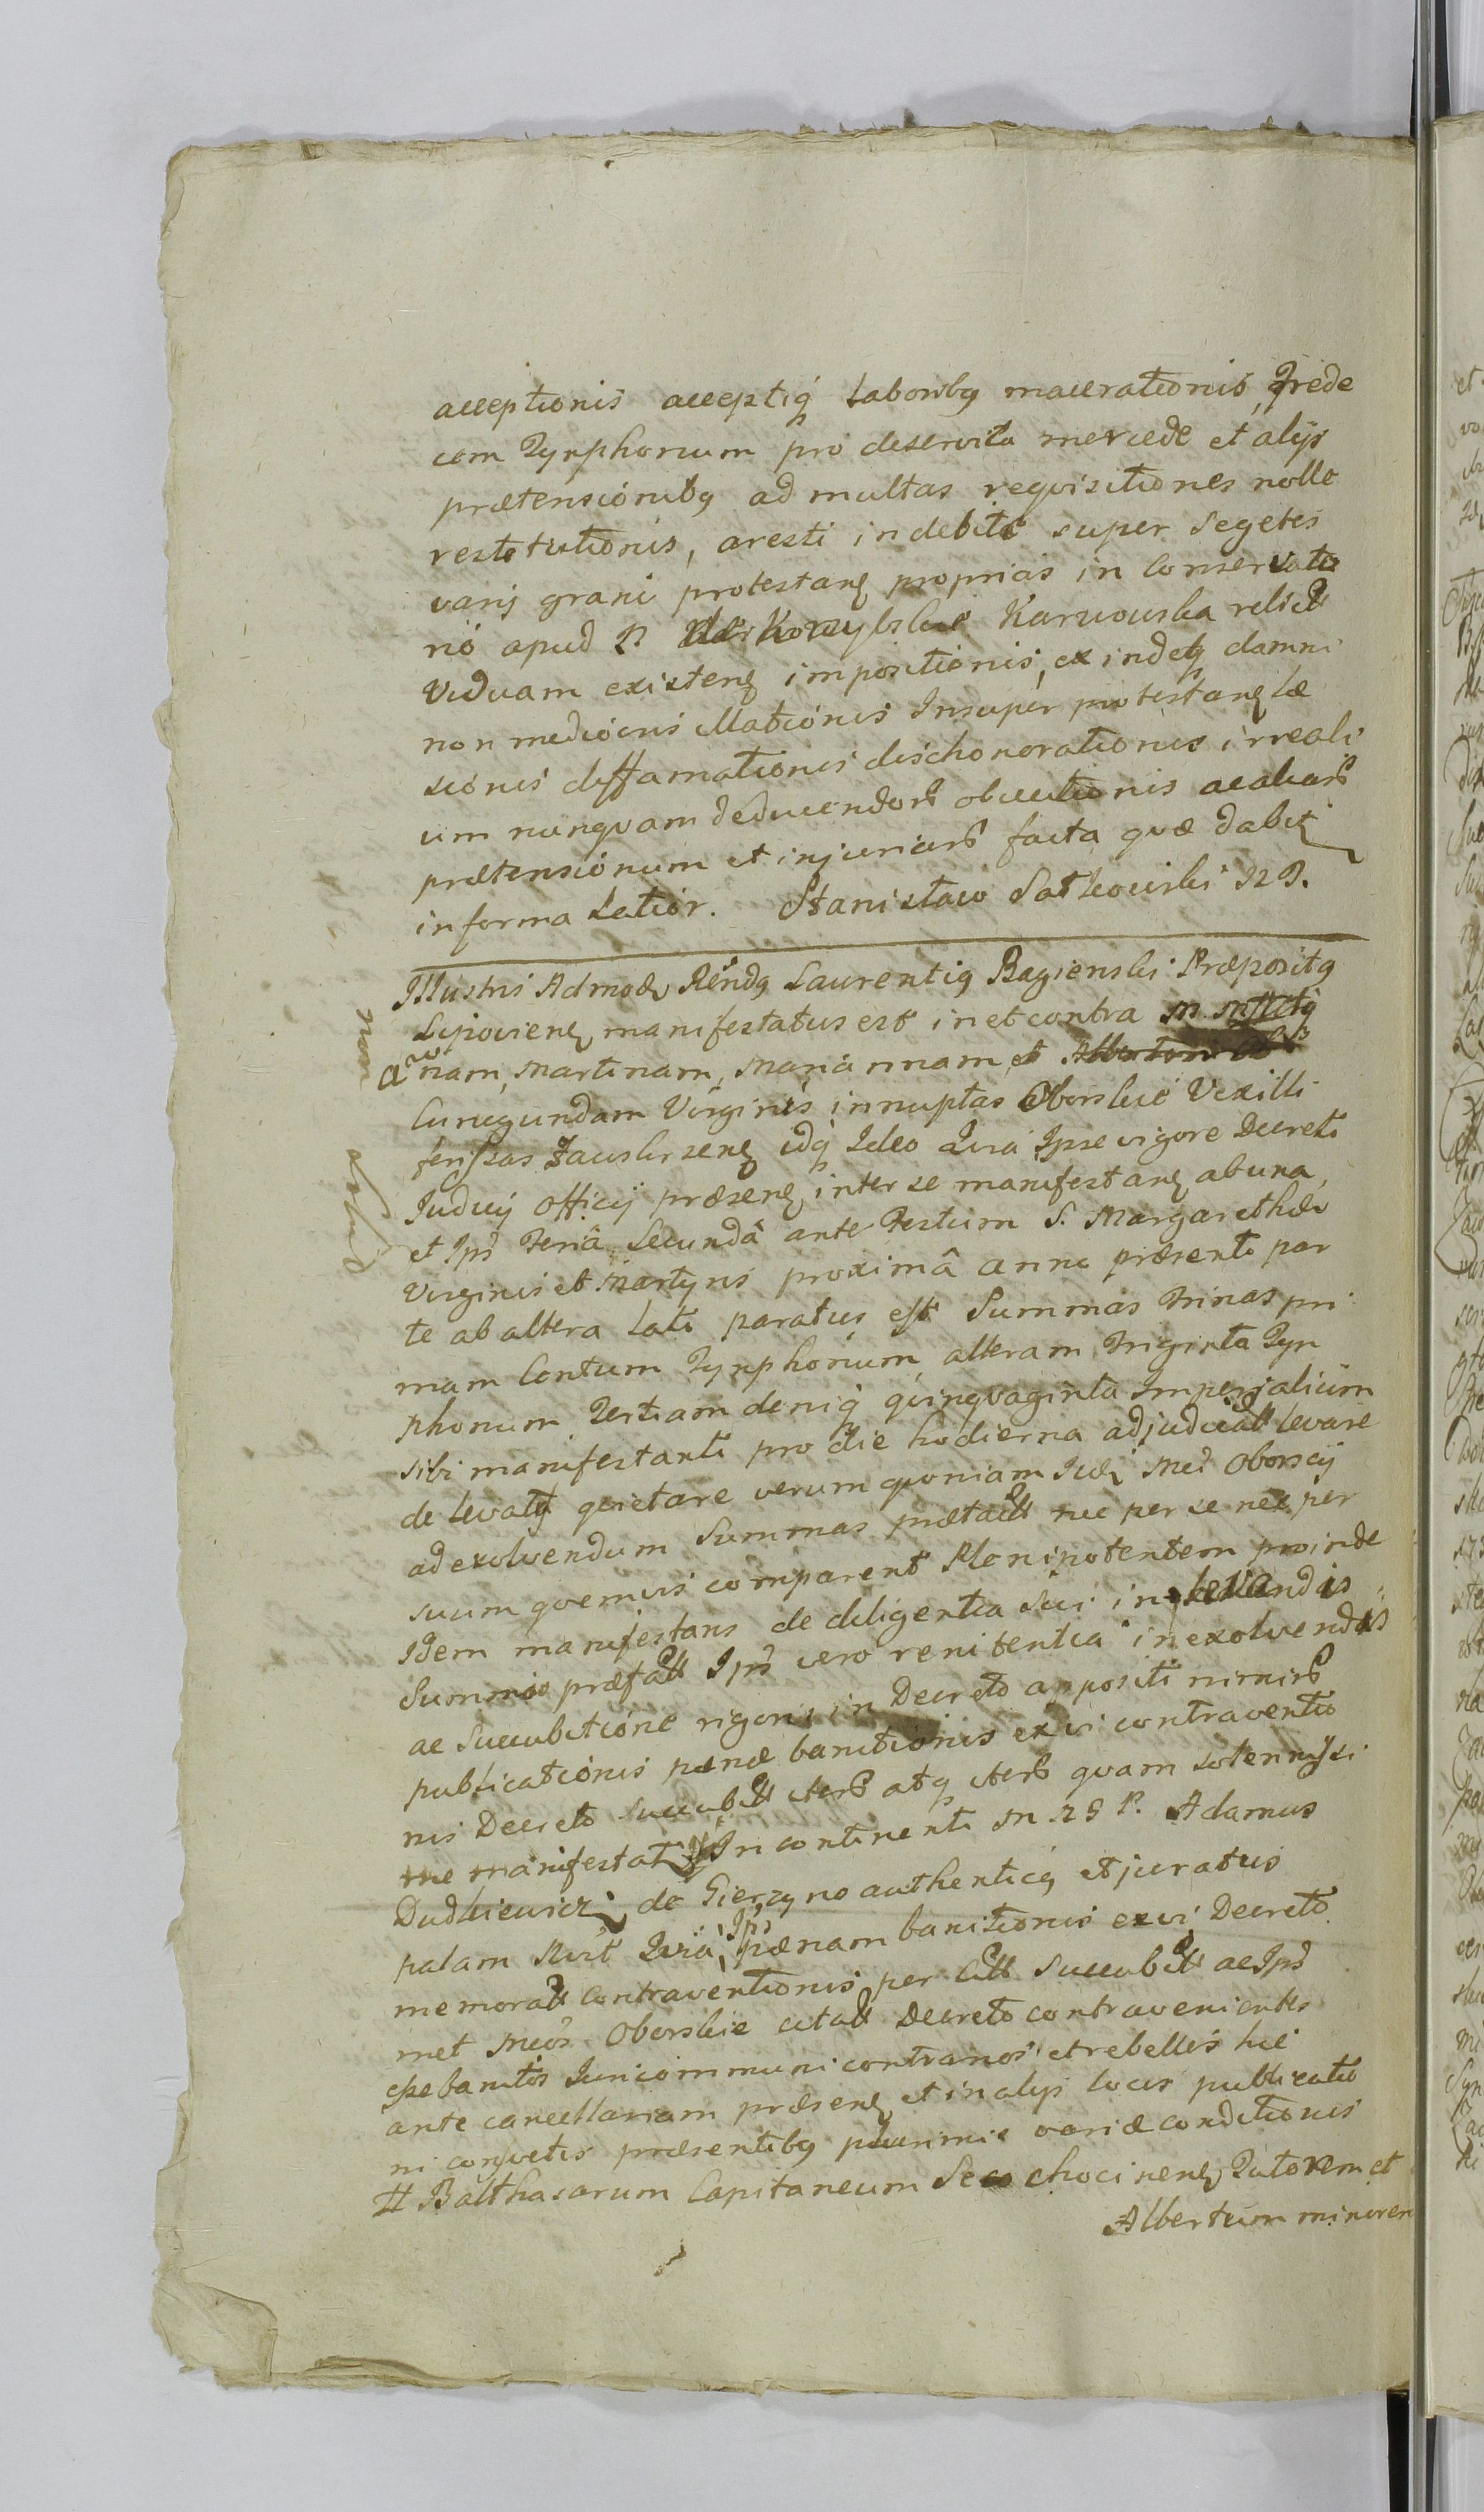 acceptionis acceptiq laboribq macerationis, Trede
cem Tynphonum pro deservita mercede et alijs
prætensionibq ad multas reqvisitiones nolle
restitutionis, aresti indebite super segetes
varij grani protestanę proprias in conservato
rio apud N Korzybskie Karwowska relict
Viduam existenę impositionis, ex indeq damni
non mediocris illationis Insuper protestanę læ
sionis diffamationis dischonorationis irreali
um nunqvam deducendorū obiectionis ac aliarū
prætensionum et injuriarū facta qvæ dabit
in forma latior. Stanisław Satkowski NP.
Illustris Admodū Rendq Laurentiq Bagienski Præpositq
Lipovienę manifestatus est in et contra M.
nam, Martinam, Mariannam et
Cunegundam Virgines innuptas Oborskie Vexilli
feriſsas Zauskrzenę idq Ideo Qvia Ipse vigore Decreti
Judicij officij præsenę inter se manifestanę ab una,
et Ips Feriâ Secundâ ante Festum S. Margarethæ
Virginis et Martyris proximâ anno præsenti par
te ab altera lati paratus eſt Summas trinas pri
mam Centum Tynphonum alteram triginta Tyn
phonum Tertiam deniq qvinqvaginta Imperialium
sibi manifestanti pro die hodierna adjudicatt levare
de levatis qvietare verum qvoniam Iidē Mci Oborscij
ad exolvendum Summas prætactt nec per se nec per
suum qvemvis comparent Plenipotentem proinde
Idem manifestans de diligentia sui in levandis
Summis præfatt Ips vero renitentia in exolvendis
ac Succubitione rigoris in Decreto appositi nimirū
publicationis pænæ banitionis ex vi contraventio
nis Decreto succubitt iterū atq iterū qvam solenniſsi
me manifestat Incontinenti M. R G P. Adamus
Dudkiewicz de Gierzyno authenticq et juratus
palam Nvit Qvia Ips pænam banitionis ex vi Decreto
memoratt contraventionis per Citt succubitt ac Ips
met Mcos Oborskie citatt Decreto contravenientes
eſse banitos Juri communi contrarios et rebelles hic
ante cancellariam præsenę et in alijs locis publicatio
ni conſvetis præsentibq plurimis variæ conditionis
# Balthasarum Capitaneum chocinenę Tutorem et
Albertum minoren